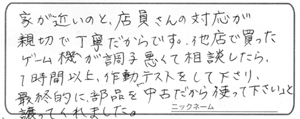 家が近いのと、店員さんの対応が
親切で丁寧だからです。他店で買った
ゲーム機が調子悪くて相談したら、
1時間以上、作動テストをして下さり、
最終的に、部品を中古だから使って下さいと
譲ってくれました。
ニックネーム